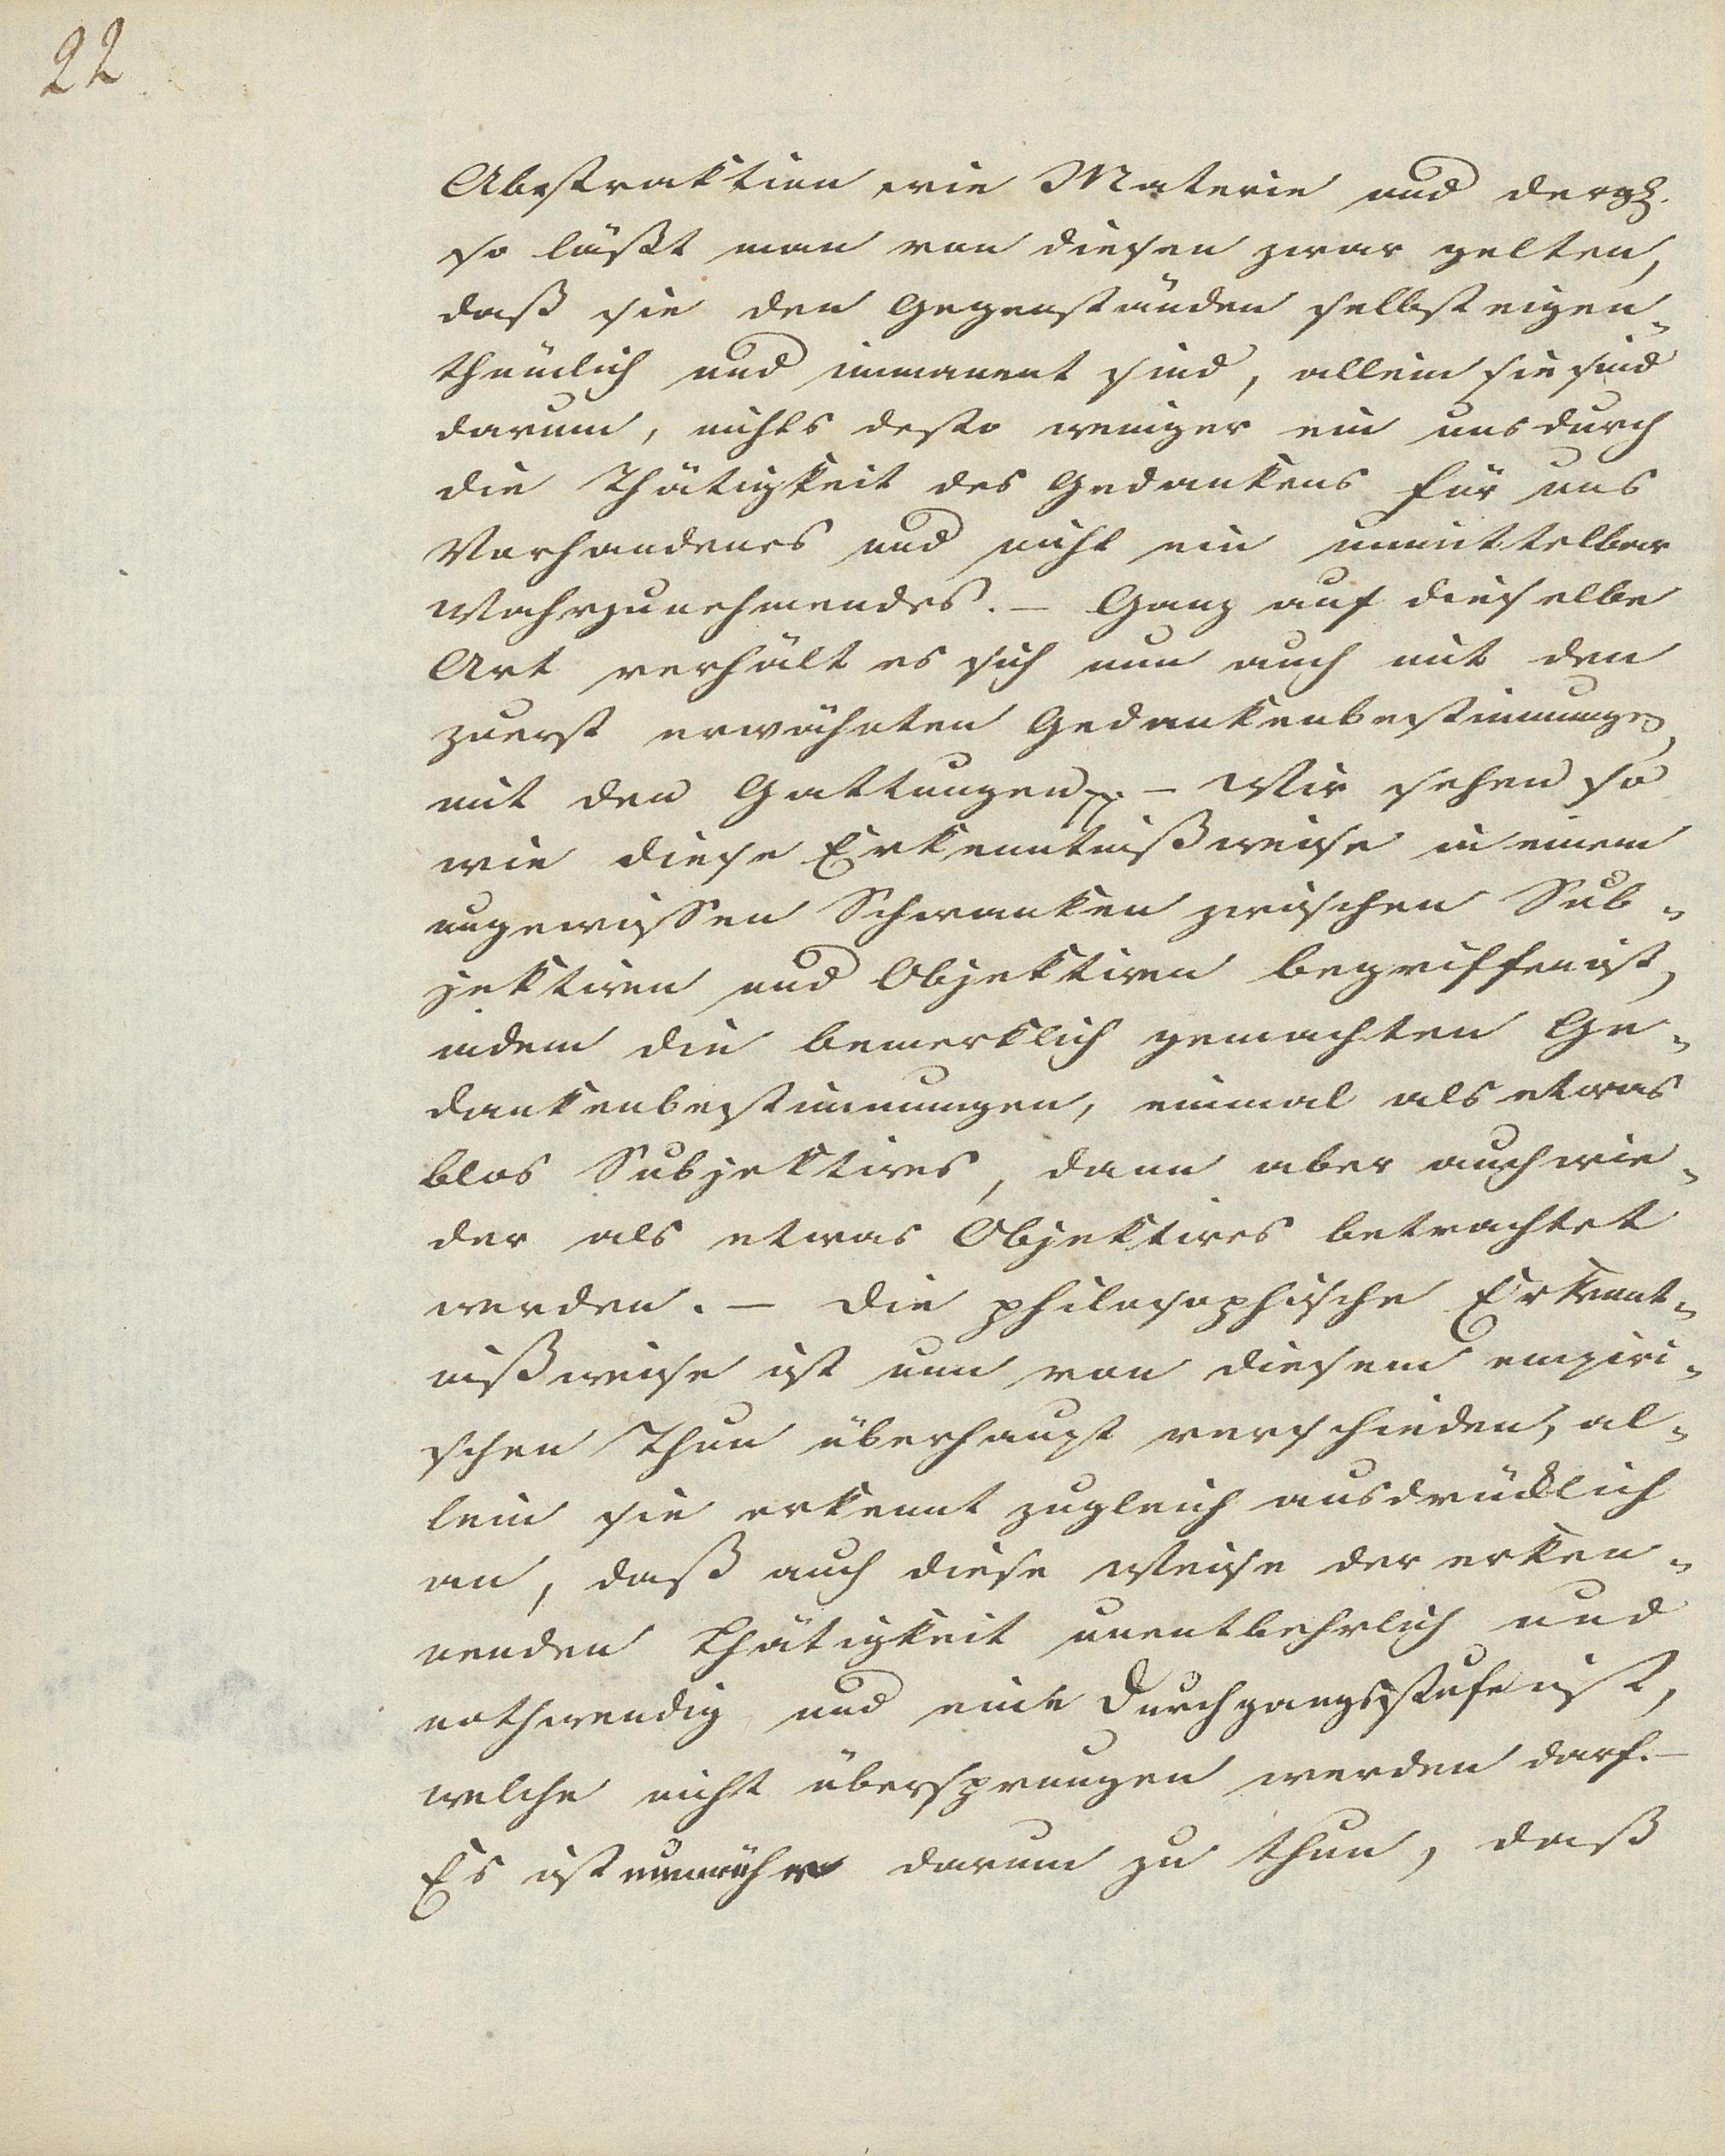 22
Abstraktion wie Materie und dergl.
so läßt man von diesen zwar gelten,
daß sie den Gegenständen selbst eigen-
thümlich und immanent sind, allein sie sind
darum, nichts desto weniger ein uns durch
die Thätigkeit des Gedankens für uns
Vorhandenes und nicht ein unmittelbar
Wahrzunehmendes. – Ganz auf dieselbe
Art verhält es sich nun auch mit den
zuerst erwähnten Gedankenbestimmungen,
mit den Gattungen – Wir sehen so
wie diese Erkenntnißweise in einem
ungewissen Schwanken zwischen Sub-
jektiven und Objektiven begriffen ist,
indem die bemerklich gemachten Ge-
dankenbestimmungen, einmal als etwas
blos Subjektives, dann aber auch wie-
der als etwas Objektives betrachtet
werden. – Die philosophische Erkennt-
nißweise ist nun von diesem empiri-
schen Thun überhaupt verschieden, al-
lein sie erkennt zugleich ausdrücklich
an, daß auch diese Weise der erken-
nenden Thätigkeit unentbehrlich und
nothwendig und eine Durchgangsstufe ist,
welche nicht übersprungen werden darf. –
Es ist darum zu thun, daß